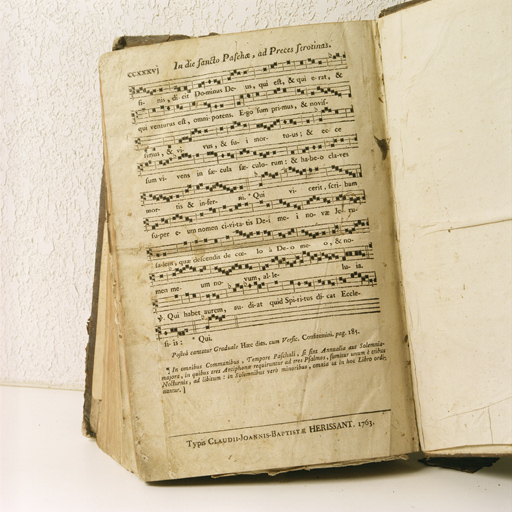 ccxxxvj In die sancto Paschæ, ad Preces serotinas.
nis, di cit Do-minus De- us, qui est, & qui e-rat, &
qui venturus est, omni-potens. E-go sum pri-mus, & novis-
simus, & vi- vus, & fu- i mor- tu-us; & ec ce
sum vi- vens in sæ-cula sæ- culo-rum; & ha-be-o cla-ves
mor- tis & in-fer- ni. * Qui vi- cerit, scri-bam
su-per e- um nomen ci-vi-ta-tis De-i me- i no- væ Je- ru-
salem, quæ descendit de cœ- lo à De-o me- o, & no-
men me- um no- vum, al-le- lu- ia.
℣. Qui habet aurem, au- di-at quid Spi-ri-tus di-cat Eccle-
si-is: * Qui.
Posteà cantatur Graduale Hæc dies. cum Versic. Confitemini. pag. 185.
¶ In omnibus Communibus, Tempore Paschali, si sint Annualia aut Solemnia-
majora, in quibus tres Antiphonæ requiruntur ad tres Psalmos, sumitur unum è tribus
Nocturnis, ad libitum: in Solemnibus verò minoribus, omnia ut in hoc Libro ordi-
nantur.
Typis CLAUDII-JOANNIS-BAPTISTÆ HERISSANT. 1763.